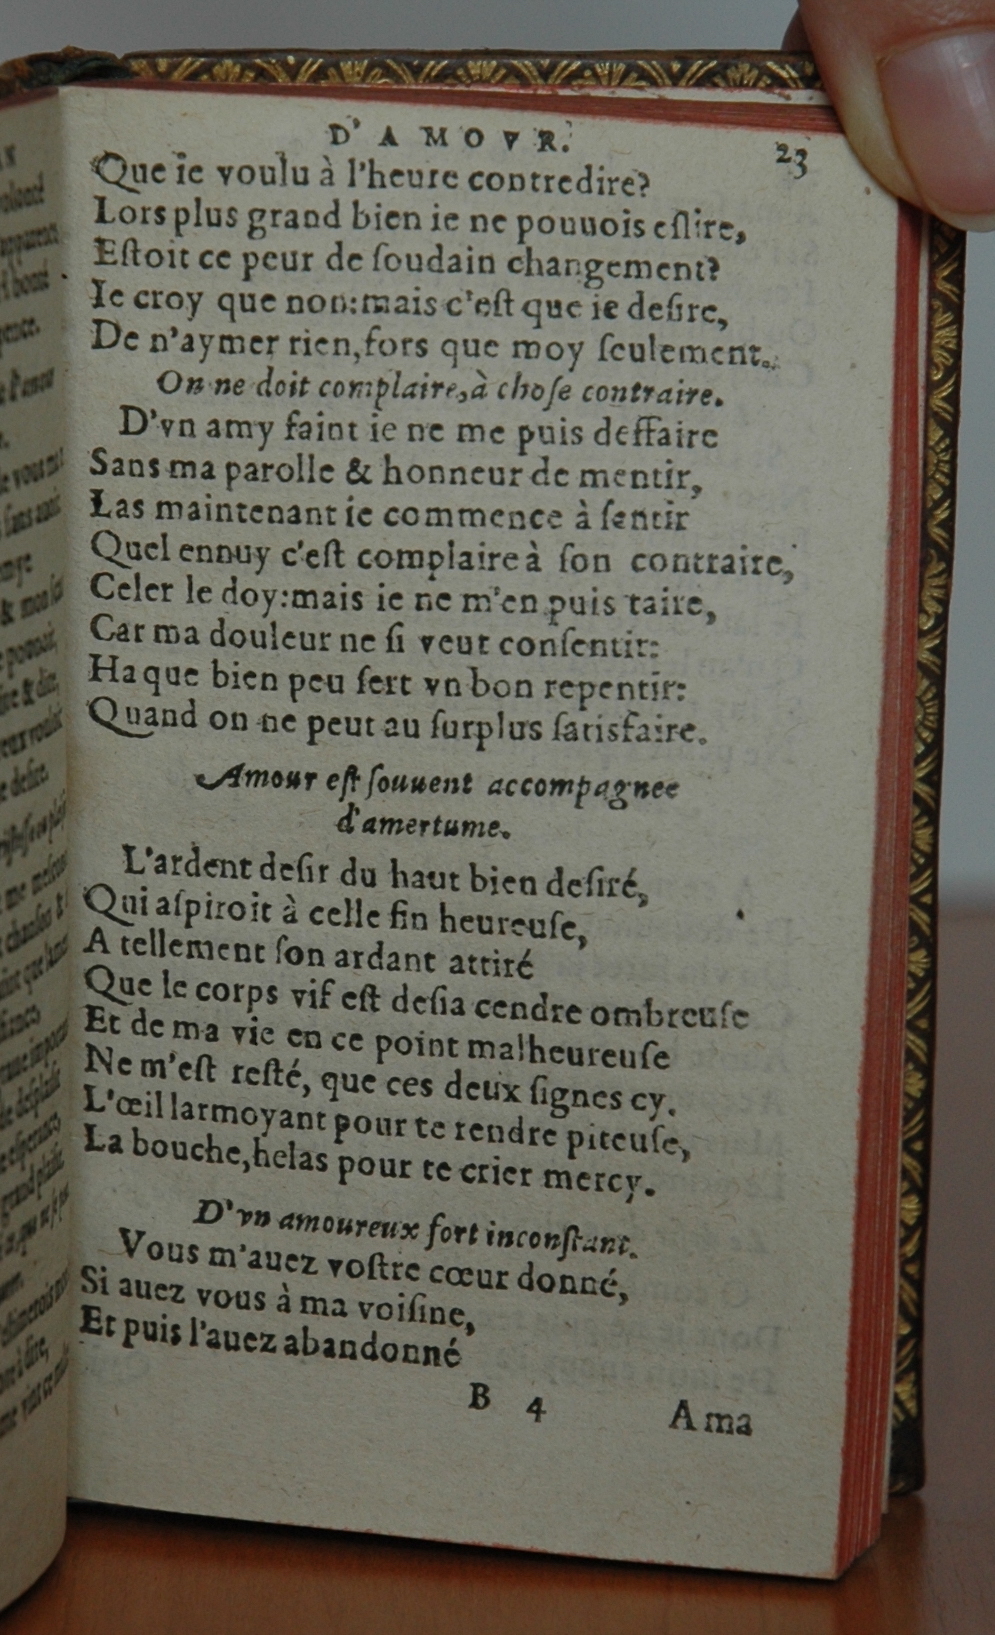 D'AMOVR.
23
Que ie voulu à l'heure contredire?
Lors plus grand bien ie ne pouuois eslire,
Eſtoit ce peur de ſoudain changement?
Ie croy que non:mais c'eſt que ie deſire,
De n'aymer rien,fors que moy ſeulement.
On ne doit complaire,à choſe contraire.
D'vn amy faint ie ne me puis deffaire
Sans ma parolle & honneur de mentir,
Las maintenant ie commence à ſentir
Quel ennuy c'eſt complaire à ſon contraire,
Celer le doy:mais ie ne m'en puis taire,
Car ma douleur ne ſi veut conſentir:
Ha que bien peu ſert vn bon repentir:
Quand on ne peut au ſurplus ſatisfaire.
Amour eſt ſouuent accompagnee
d'amertume.
L'ardent deſir du haut bien deſiré,
Qui aſpiroit à celle fin heureuſe,
A tellement ſon ardant attiré
Que le corps vif eſt deſia cendre ombreuſe
Et de ma vie en ce point malheureuſe
Ne m'eſt reſté, que ces deux ſignes cy.
L'œil larmoyant pour te rendre piteuſe,
La bouche,helas pour te crier mercy.
D'vn amoureux fort inconſtant.
Vous m'auez voſtre cœur donné,
Si auez vous à ma voiſine,
Et puis l'auez abandonné
B 4
A ma